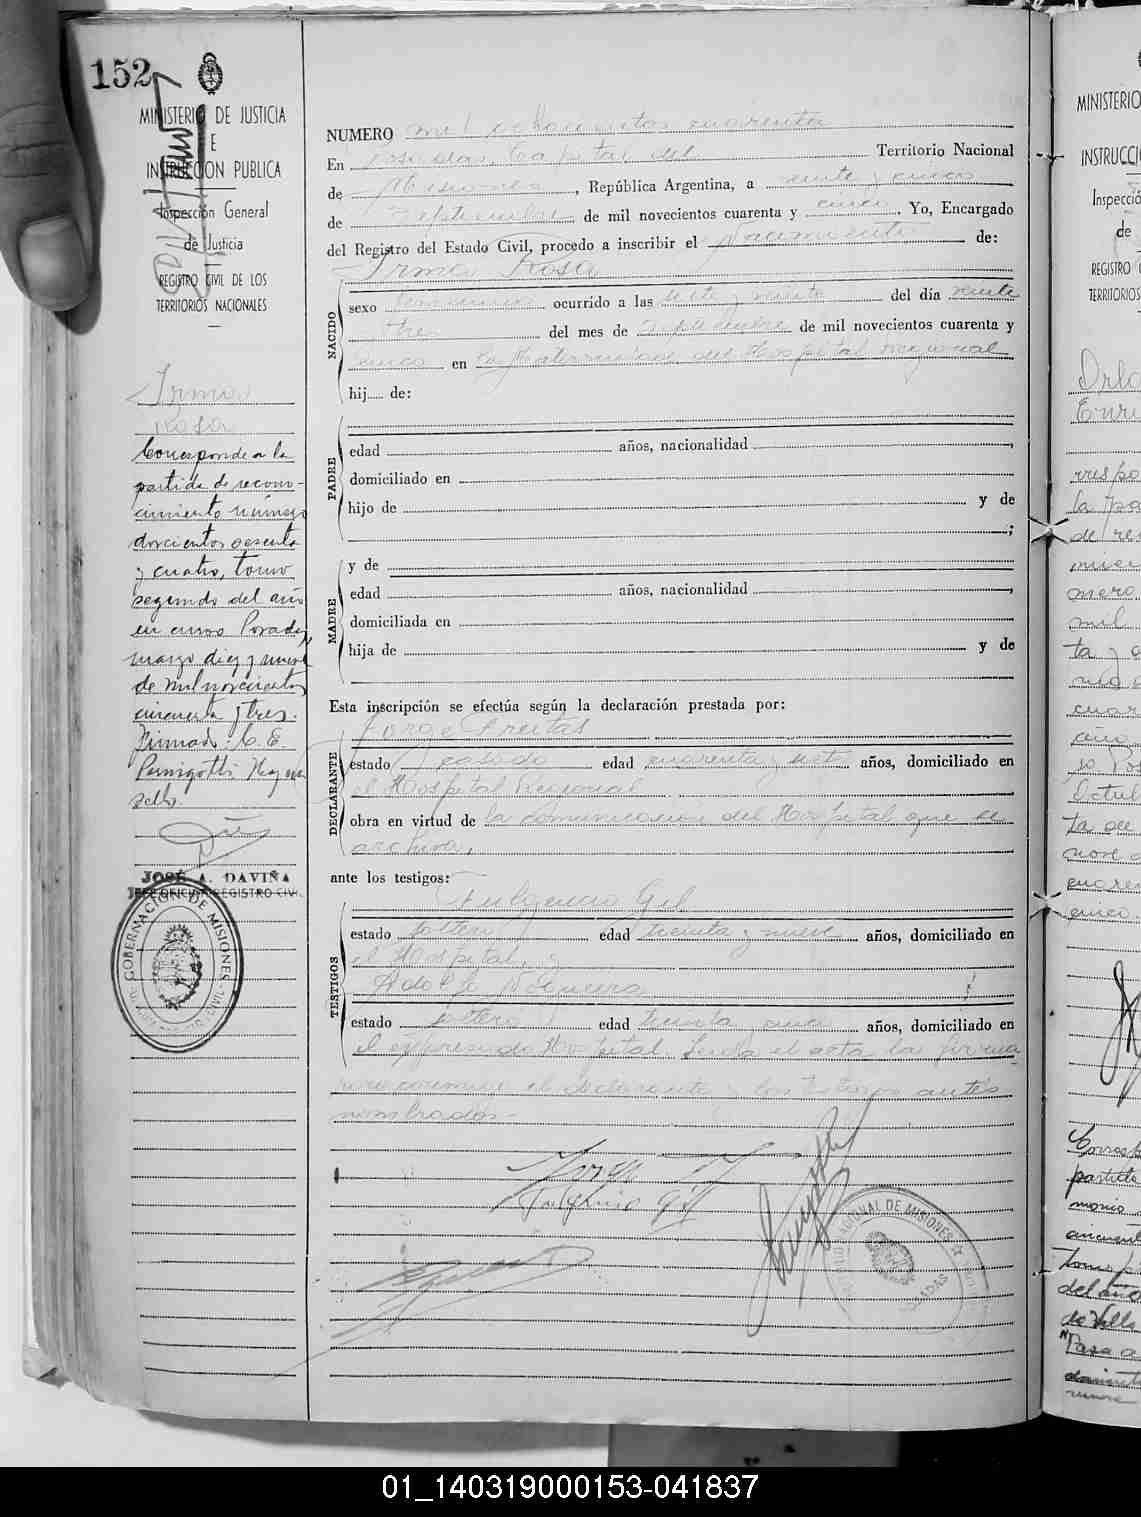 152
MINISTERIO DE JUSTICIA
E
INSTRUCCION PUBLICA
Inspección General
de Justicia
REGISTRO CIVIL DE LOS
TERRITORIOS NACIONALES
Irma
Rosa
Corresponde a la
partida de recono-
cimiento número
doscientos sesenta
y cuatro, tomo
segundo del año
en curso Posadas
marzo diez y nueve
de mil novecientos
cincuenta y tres.
Firmado: C. E.
Pernigotti. Hay un
sello.
JOSÉ A. DAVIÑA
JEFE OFICINA REGISTRO CIVIL
GOBERNACIÓN DE MISIONES
NUMERO mil ochocientos cuarenta
En Posadas, Capital del Territorio Nacional
de Misiones, República Argentina, a veinte y cinco
de Septiembre de mil novecientos cuarenta y cinco. Yo, Encargado
del Registro del Estado Civil, procedo a inscribir el nacimiento de:
Irma Rosa
NACIDO
sexo femenino ocurrido a las siete y veinte del día veinte
tres del mes de septiembre de mil novecientos cuarenta y
cinco en la Maternidad del Hospital Regional
hij de:
PADRE
edad años, nacionalidad ,
domiciliado en
hijo de y de
;
MADRE
y de
edad años, nacionalidad ,
domiciliada en
hija de y de
Esta inscripción se efectúa según la declaración prestada por:
Jorge Freitas
DECLARANTE
estado casado edad cuarenta y siete años, domiciliado en
el Hospital Regional
obra en virtud de la comunicación del Hospital que se
archiva.
ante los testigos:
Fulgencio Gil
TESTIGOS
estado soltero edad treinta y nueve años, domiciliado en
el Hospital, y
Adolfo Nogueira
estado soltero edad treinta y años, domiciliado en
el expresado Hospital. Leída el acta la firma
ron conmigo el declarante y los testigos antes
nombrados.-
Jorge F
Fulgencio Gil
NACIONAL DE MISIONES
POSADAS
MINISTERIO
INSTRUCCI
Inspecció
de
REGISTRO
TERRITORIOS
la
de
mil
ta y
cuar
Octub
ta de
cuaren
cinco.
Corresp
partida
monio
cincuent
Tomo
del año
de Villa
Pasa a
01_140319000153-041837